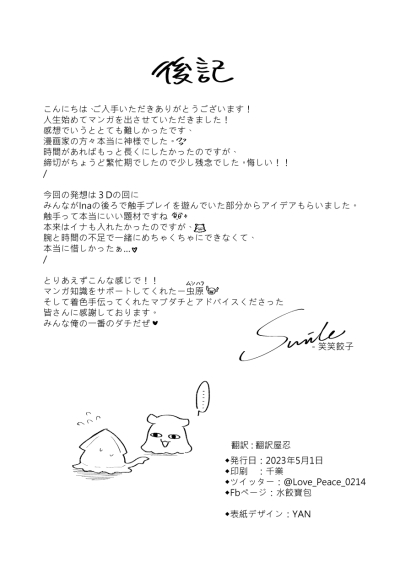 後記
こんにちは、ご入手いただきありがとうございます！
人生始めてマンガを出させていただきました！
感想でいうととても難しかったです、
漫画家の方々本当に神様でした。
時間があればもっと長くにしたかったのですが、
締切がちょうど繁忙期でしたので少し残念でした。悔しい！！
/
今回の発想は３Dの回に
みんながInaの後ろで触手プレイを遊んでいた部分からアイデアもらいました。
触手って本当にいい題材ですね
本来はイナも入れたかったのですが、
腕と時間の不足で一緒にめちゃくちゃにできなくて、
本当に惜しかったぁ…♥
/
とりあえずこんな感じで！！
ムシハラ
マンガ知識をサポートしてくれた一虫原
そして着色手伝ってくれたマブダチとアドバイスくださった
皆さんに感謝しております。
みんな俺の一番のダチだぜ♥
Smile
- 笑笑餃子
……
翻訳：翻訳屋忍
◆発行日：2023年5月1日
◆印刷　：千業
◆ツイッター：@Love_Peace_0214
◆Fbページ：水餃寶包
◆表紙デザイン：YAN